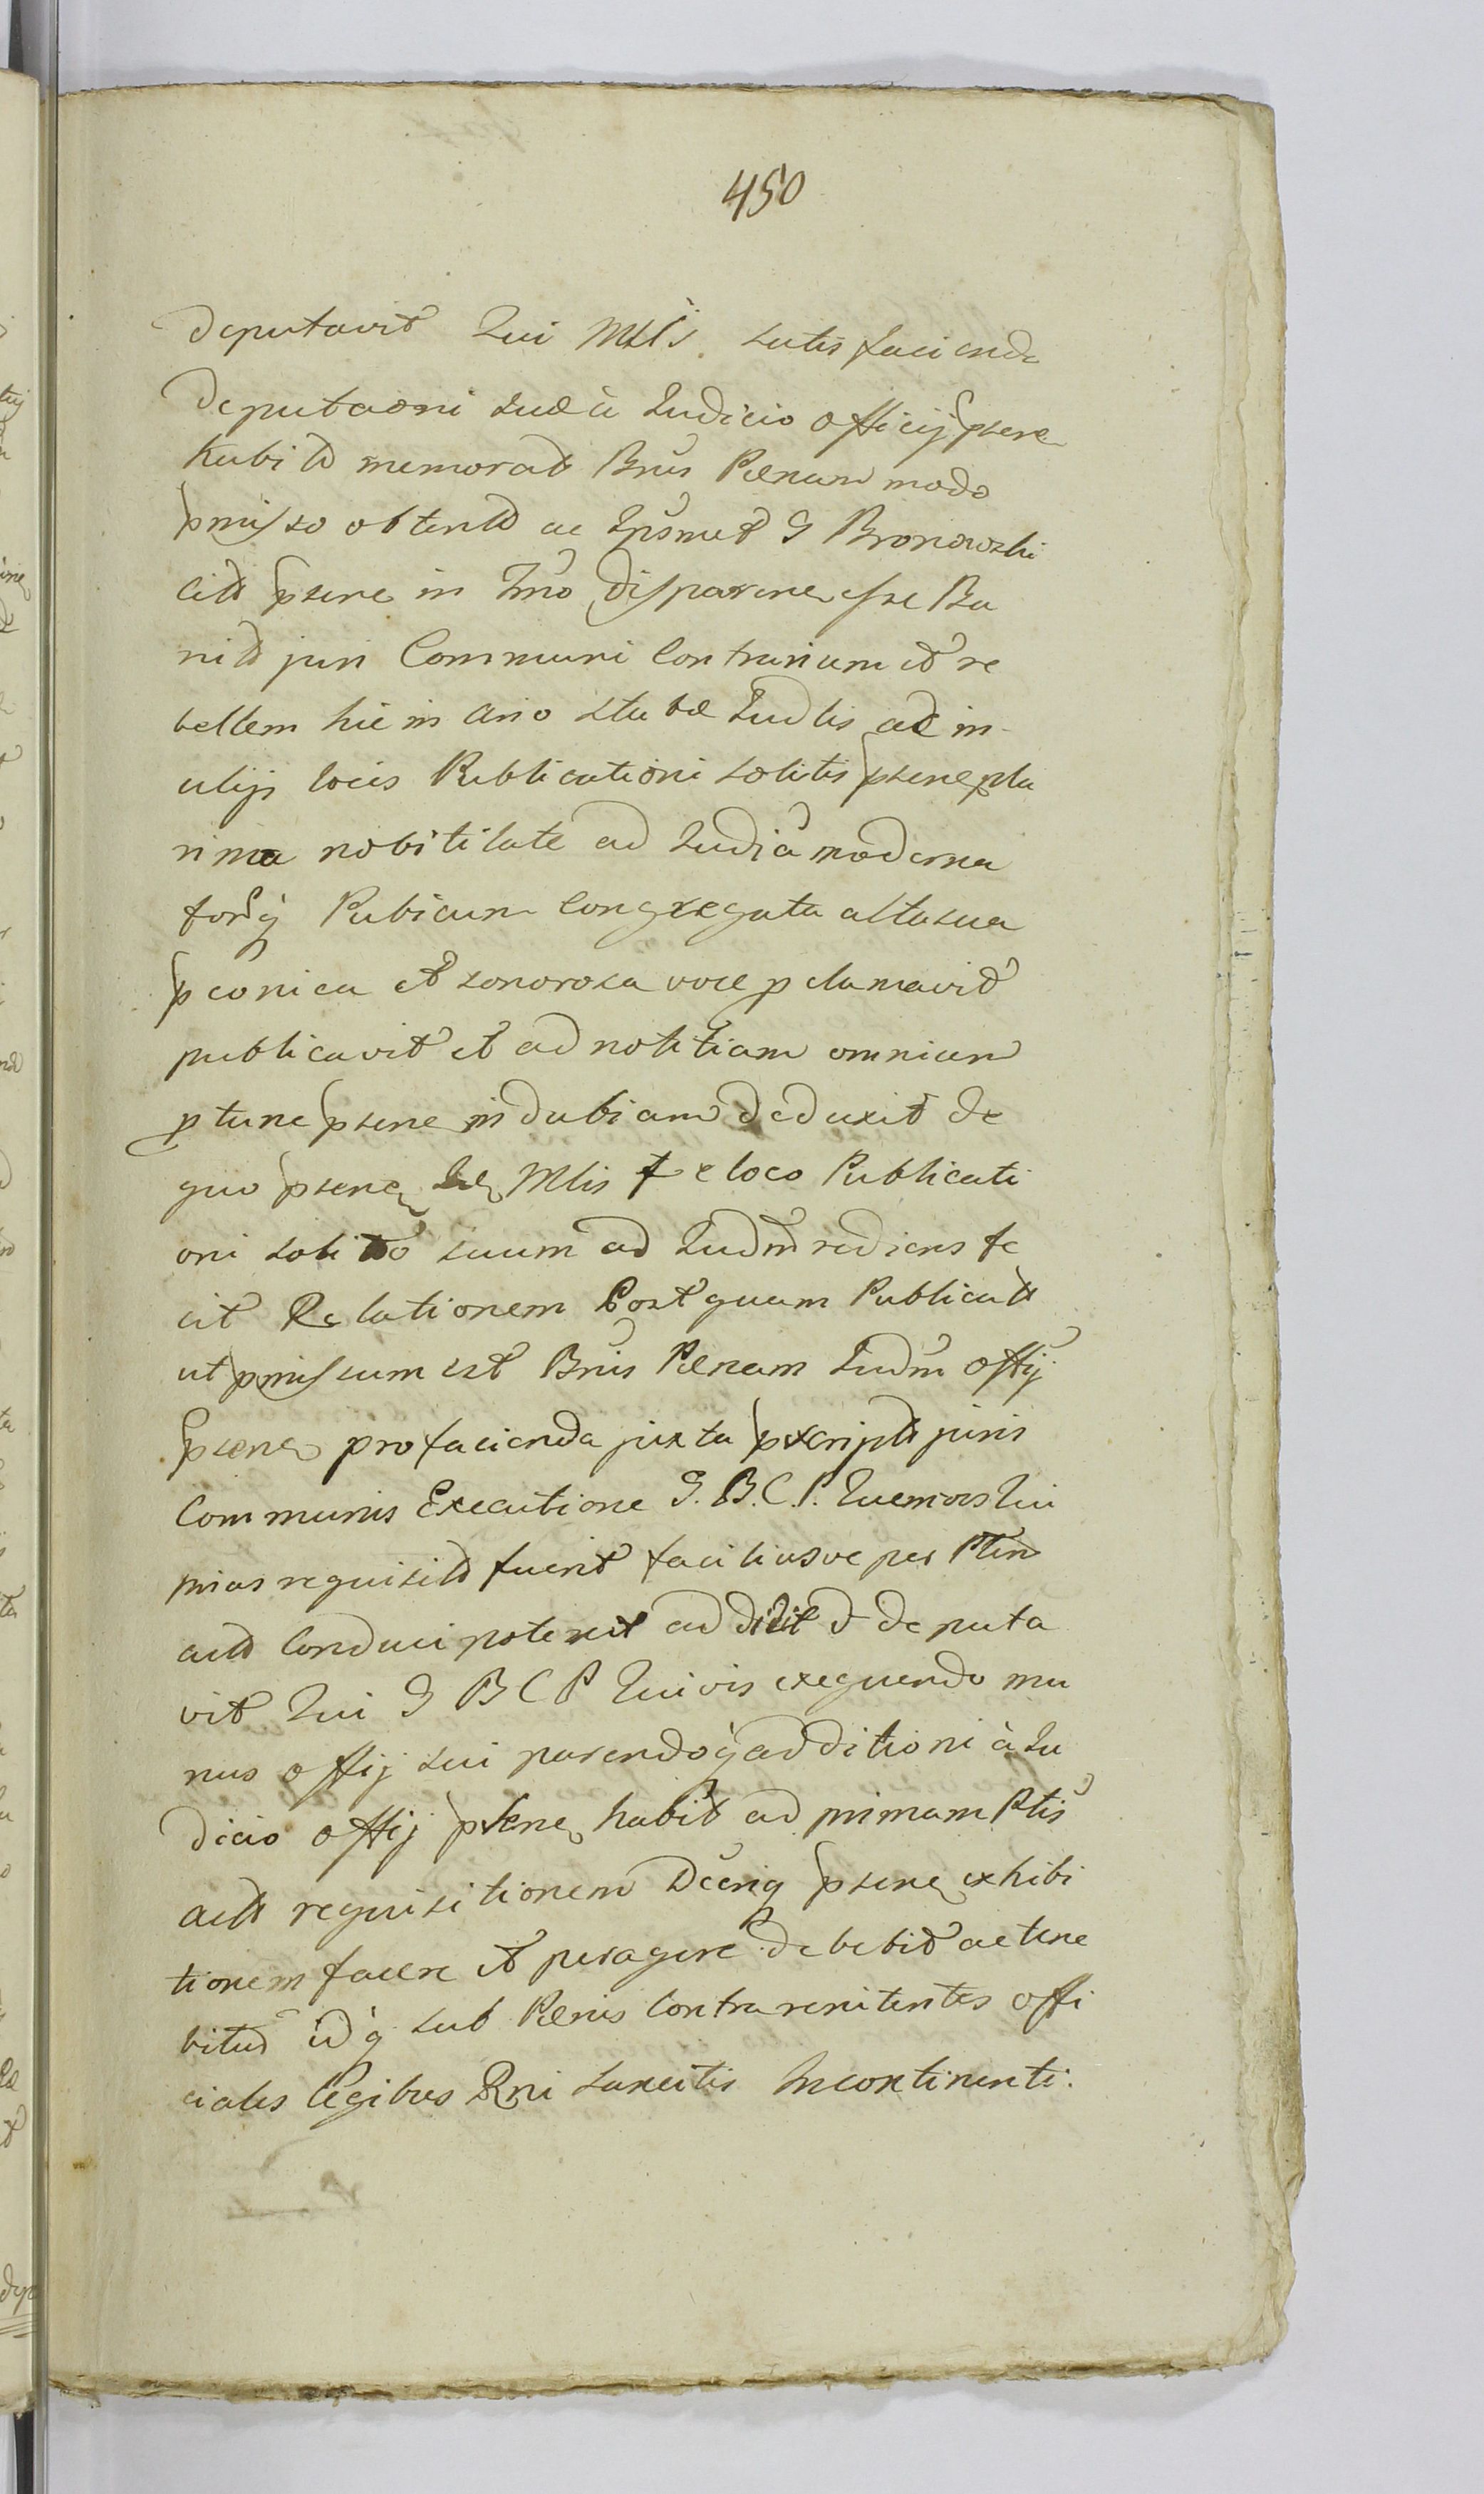 450
deputavit qui Mlis satisfaciendo
Deputaõni suæ à Judicio officij pñse
habitæ memorat Bñis Pænam modo
pmisso obtent ac Ipsmet G Bronowski
citt psene in Tmo disparene esse Ba
nitt juri Communi Contrarium et re
bellem hic in Ano stubæ Judlis ac in
alijs locis Publicationi solitis psene plu
rima nobilitate ad Judia moderna
forq Pubicum Congregata alta sua
pconica et sonorosa voce pclamavit
publicavit et ad notitiam omnium
ptunc psene indubiam deduxit de
quo psene Mlis e loco Publicati
oni solito suum ad Judm rediens fe
cit Relationem Postquam Publicatt
ut pmissum est Bnis Pænam Judm offij
psene pro facienda juxta pscript juris
Communis Executione G. B. C. P. Quemvis qui
prius requisitt fuerit faciliusve per Ptem
actt Conduci poterit addidit et deputa
vit qui G B C P quivis exequendo mu
nus offij sui parendoq additioni à Ju
dicio offij psene habit ad primam Ptis
actt requisitionem Dcenq psene exhibi
tionem facere et peragere debebit ac tene
bitur idq sub Pænis Contra renitentes offi
ciales legibus Rni sancitis Incontinenti.